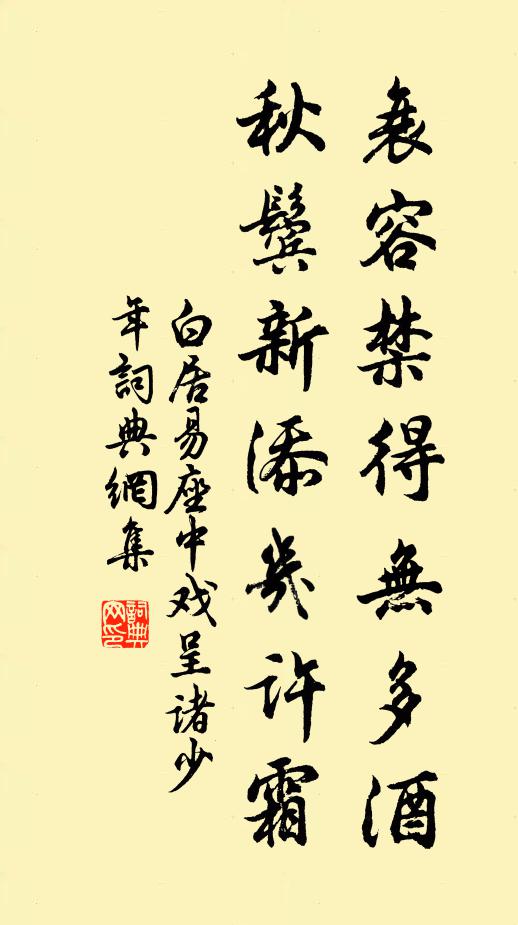 衰容禁得無多酒
秋鬢新添幾許霜
白居易座中戏呈诸少
年詞典網集
詞典网印